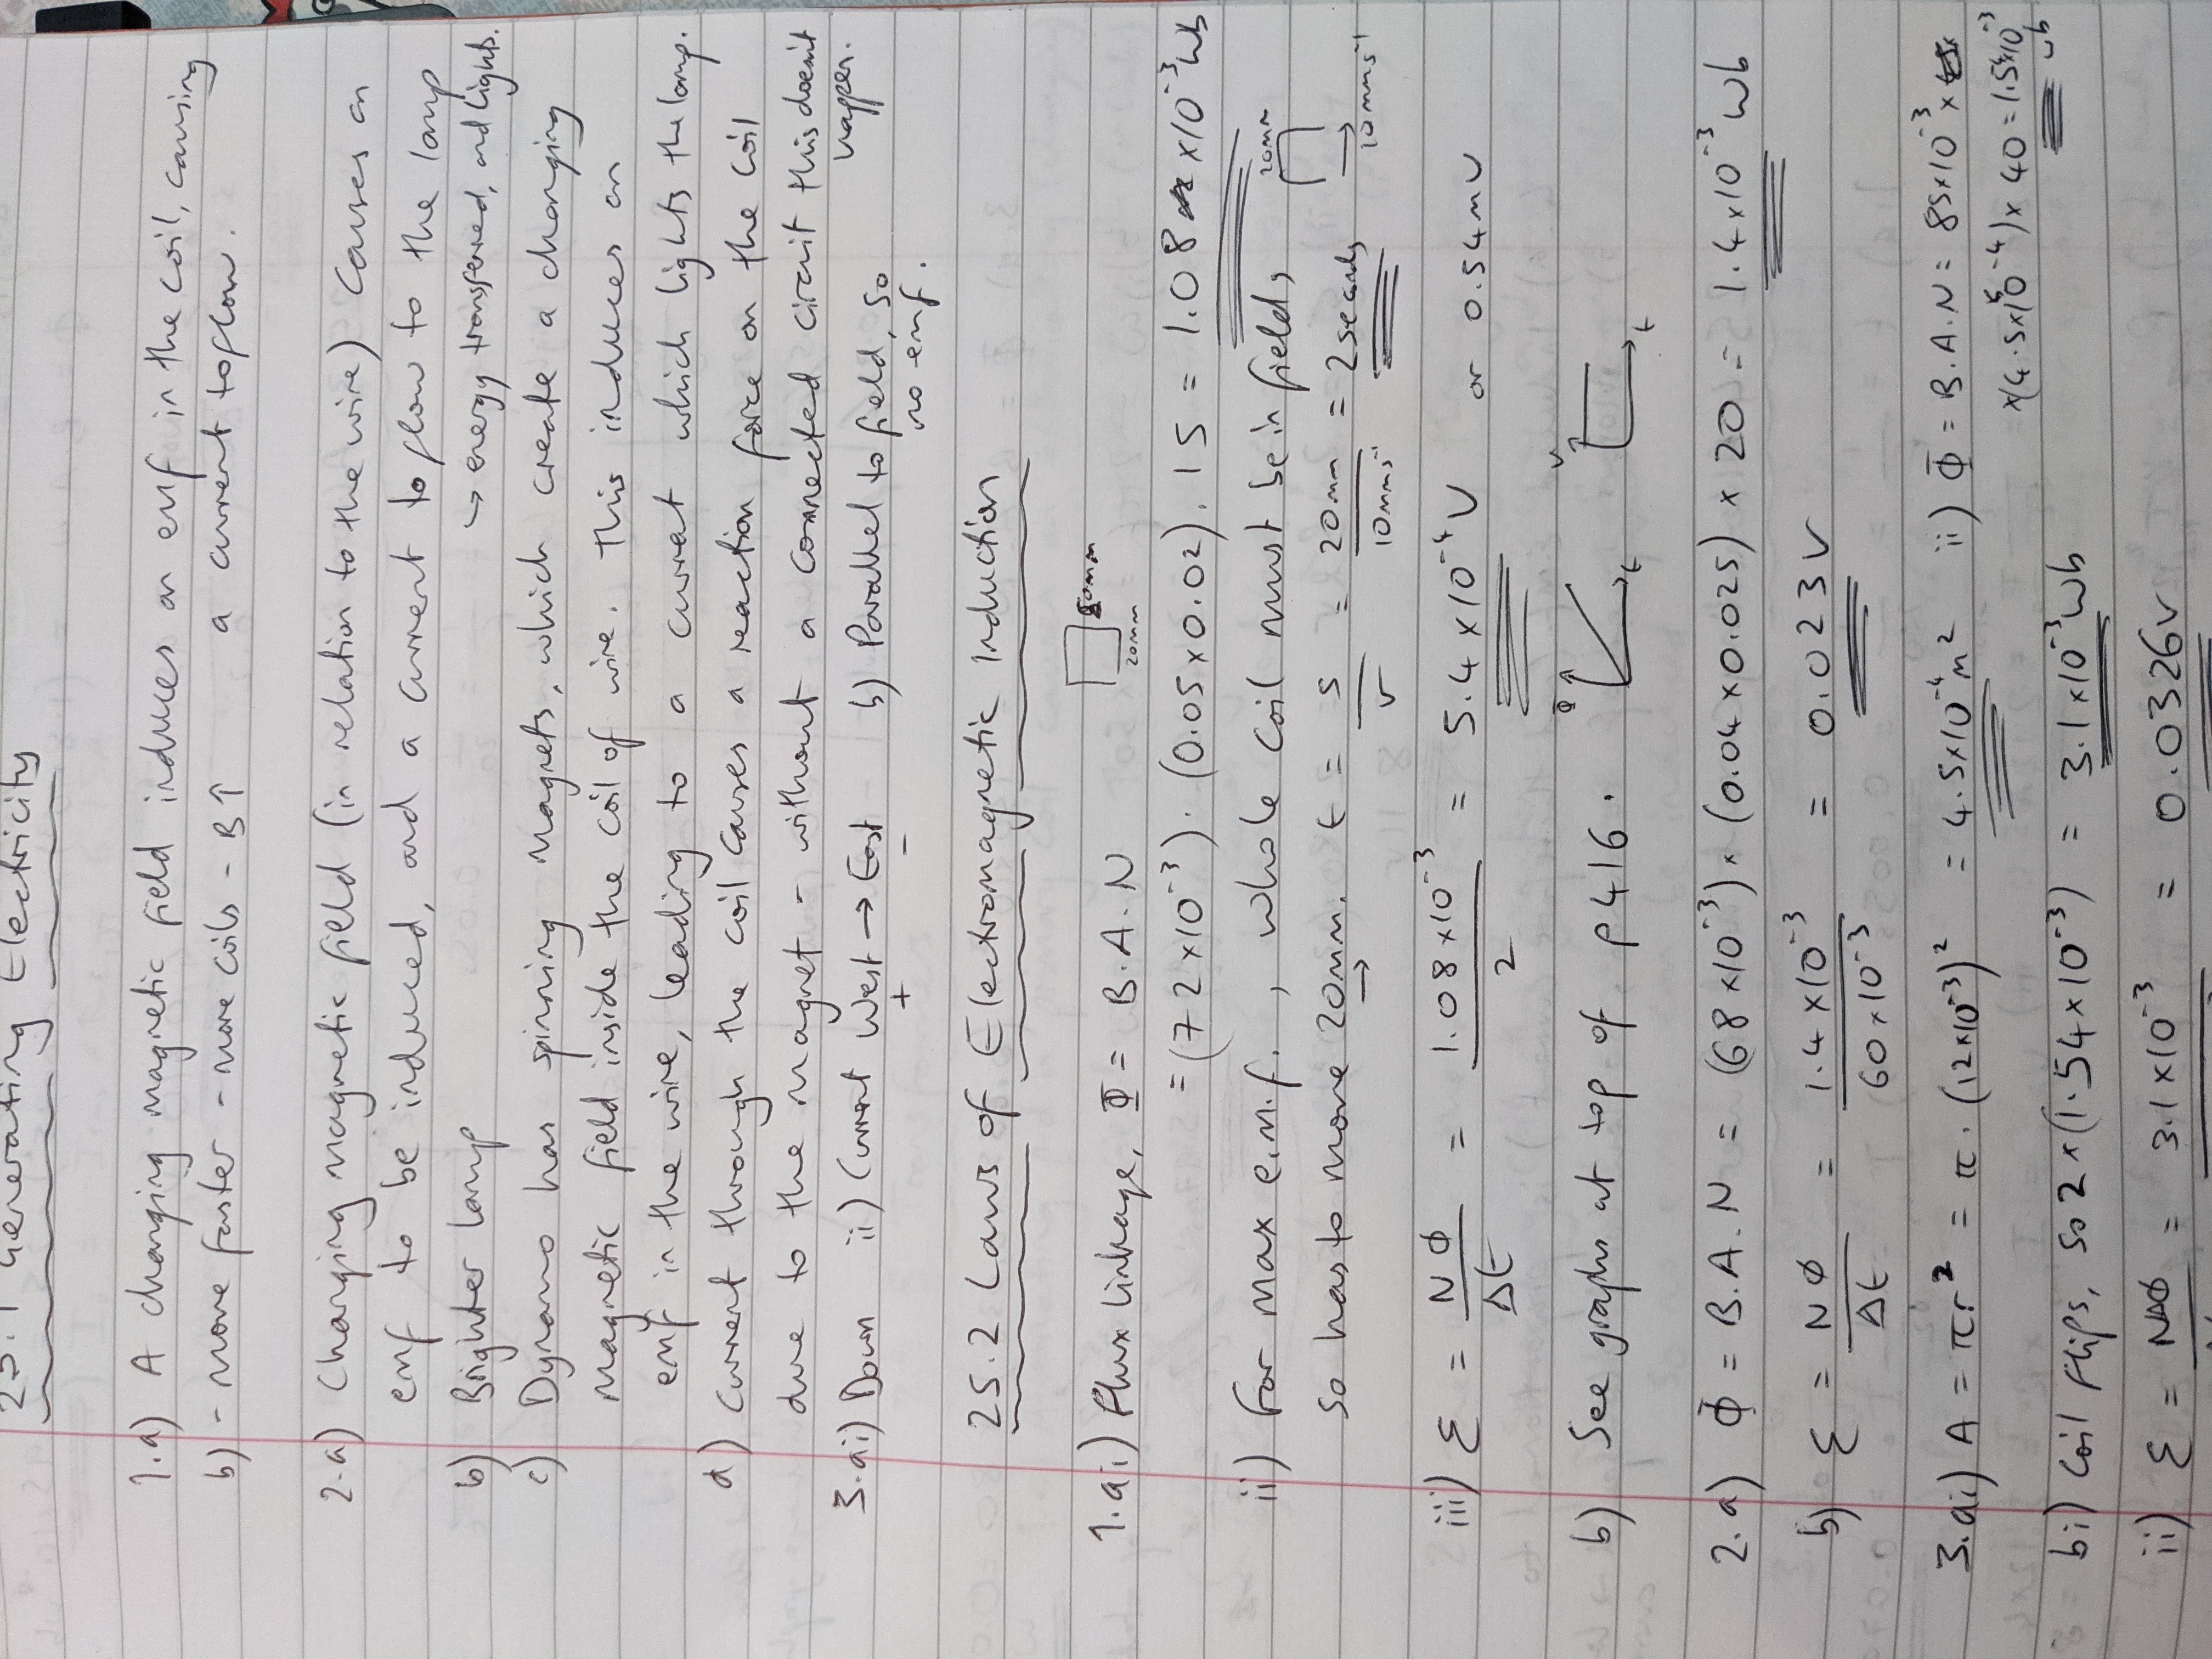 25.1 Generating Electricity
1.a) A changing magnetic field induces an emf in the coil, causing
b) - move faster - more coils - B↑ a current to flow.
2.a) Changing magnetic field (in relation to the wire) causes an
emf to be induced, and a current to flow to the lamp
b) Brighter lamp → energy transferred, and lights.
c) Dynamo has spinning magnets, which create a changing
magnetic field inside the coil of wire. This induces an
emf in the wire, leading to a current which lights the lamp.
d) Current through the coil causes a reaction force on the coil
due to the magnet - without a connected circuit this doesn't
happen.
3.ai) Down ii) Current West → East b) Parallel to field, so
+ - no emf.
25.2 Laws of Electromagnetic Induction
1.ai) Flux linkage, Φ = B.A.N 20mm 50mm
= (72×10⁻³).(0.05×0.02).15 = 1.08×10⁻³Wb
ii) For max e.m.f., whole coil must be in field, 20mm
so has to move 20mm. t = s/v = 20mm/10mms⁻¹ = 2seconds → 10mms⁻¹
→
iii) ε = Nϕ/Δt = 1.08×10⁻³/2 = 5.4×10⁻⁴V or 0.54mV
b) See graphs at top of p416. Φ t V t
2.a) Φ = B.A.N = (68×10⁻³)×(0.04×0.025)×20 = 1.4×10⁻³Wb
b) ε = Nϕ/Δt = 1.4×10⁻³/60×10⁻³ = 0.023V
3.ai) A = πr² = π.(12×10⁻³)² = 4.5×10⁻⁴m² ii) Φ = B.A.N = 85×10⁻³×
×(4.5×10⁻⁴)×40 = 1.54×10⁻³
Wb
bi) Coil flips, so 2×(1.54×10⁻³) = 3.1×10⁻³Wb
ii) ε = NΔϕ = 3.1×10⁻³ = 0.0326V